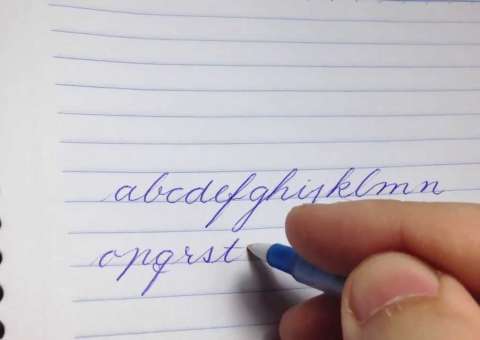 abcdefghijklmn
opqrst